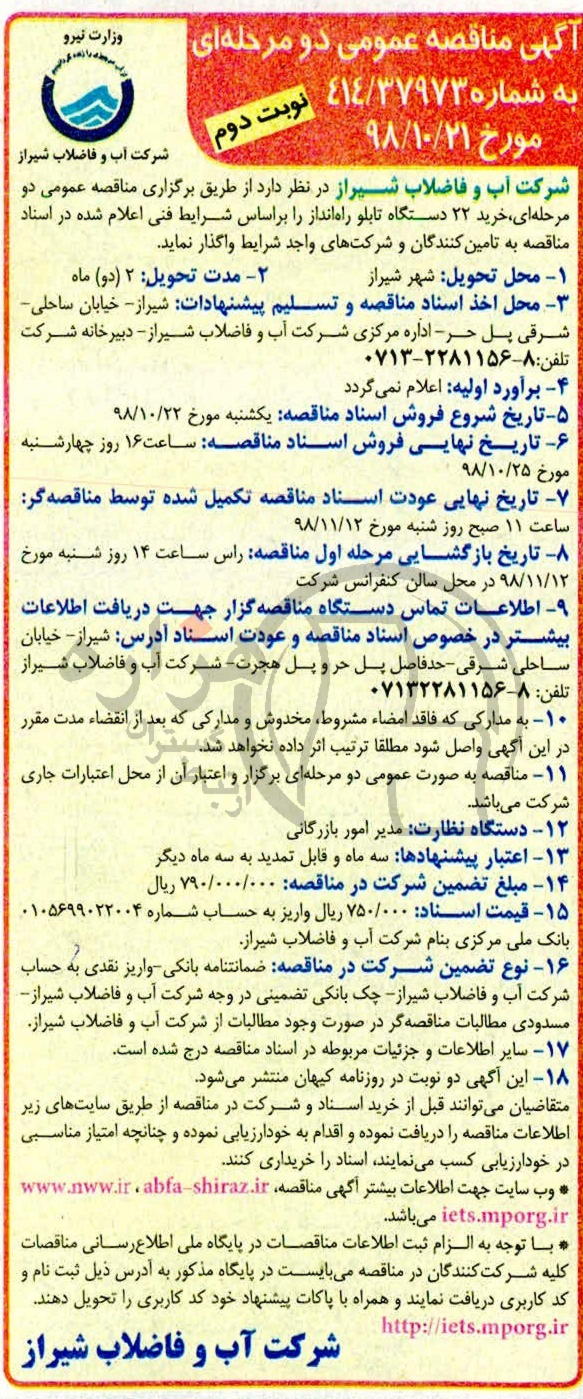 آگهی مناقصه عمومی دو مرحله‌ای
به شماره ۴۱٤/۳۷۹۷۳
مورخ ۹۸/۱۰/۲۱
نوبت دوم
وزارت نیرو
شرکت آب و فاضلاب شیراز
شرکت آب و فاضلاب شیراز در نظر دارد از طریق برگزاری مناقصه عمومی دو
مرحله‌ای،خرید ۲۲ دستگاه تابلو راه‌انداز را براساس شرایط فنی اعلام شده در اسناد
مناقصه به تامین‌کنندگان و شرکت‌های واجد شرایط واگذار نماید.
۱- محل تحویل: شهر شیراز ۲- مدت تحویل: ۲ (دو) ماه
۳- محل اخذ اسناد مناقصه و تسلیم پیشنهادات: شیراز- خیابان ساحلی-
شرقی پل حر- اداره مرکزی شرکت آب و فاضلاب شیراز- دبیرخانه شرکت
تلفن:۸-۲۲۸۱۱۵۶-۰۷۱۳
۴- برآورد اولیه: اعلام نمی‌گردد
۵-تاریخ شروع فروش اسناد مناقصه: یکشنبه مورخ ۹۸/۱۰/۲۲
۶- تاریخ نهایی فروش اسناد مناقصه: ساعت۱۶ روز چهارشنبه
مورخ ۹۸/۱۰/۲۵
۷- تاریخ نهایی عودت اسناد مناقصه تکمیل شده توسط مناقصه‌گر:
ساعت ۱۱ صبح روز شنبه مورخ ۹۸/۱۱/۱۲
۸- تاریخ بازگشایی مرحله اول مناقصه: راس ساعت ۱۴ روز شنبه مورخ
۹۸/۱۱/۱۲ در محل سالن کنفرانس شرکت
۹- اطلاعات تماس دستگاه مناقصه‌گزار جهت دریافت اطلاعات
بیشتر در خصوص اسناد مناقصه و عودت اسناد آدرس: شیراز- خیابان
ساحلی شرقی-حدفاصل پل حر و پل هجرت- شرکت آب و فاضلاب شیراز
تلفن: ۸-۰۷۱۳۲۲۸۱۱۵۶
۱۰- به مدارکی که فاقد امضاء مشروط، مخدوش و مدارکی که بعد از انقضاء مدت مقرر
در این آگهی واصل شود مطلقا ترتیب اثر داده نخواهد شد.
۱۱- مناقصه به صورت عمومی دو مرحله‌ای برگزار و اعتبار آن از محل اعتبارات جاری
شرکت می‌باشد.
۱۲- دستگاه نظارت: مدیر امور بازرگانی
۱۳- اعتبار پیشنهادها: سه ماه و قابل تمدید به سه ماه دیگر
۱۴- مبلغ تضمین شرکت در مناقصه: ۷۹۰/۰۰۰/۰۰۰ ریال
۱۵- قیمت اسناد: ۷۵۰/۰۰۰ ریال واریز به حساب شماره ۰۱۰۵۶۹۹۰۲۲۰۰۴
بانک ملی مرکزی بنام شرکت آب و فاضلاب شیراز.
۱۶- نوع تضمین شرکت در مناقصه: ضمانتنامه بانکی-واریز نقدی به حساب
شرکت آب و فاضلاب شیراز- چک بانکی تضمینی در وجه شرکت آب و فاضلاب شیراز-
مسدودی مطالبات مناقصه‌گر در صورت وجود مطالبات از شرکت آب و فاضلاب شیراز.
۱۷- سایر اطلاعات و جزئیات مربوطه در اسناد مناقصه درج شده است.
۱۸- این آگهی دو نوبت در روزنامه کیهان منتشر می‌شود.
متقاضیان می‌توانند قبل از خرید اسناد و شرکت در مناقصه از طریق سایت‌های زیر
اطلاعات مناقصه را دریافت نموده و اقدام به خودارزیابی نموده و چنانچه امتیاز مناسبی
در خودارزیابی کسب می‌نمایند، اسناد را خریداری کنند.
* وب سایت جهت اطلاعات بیشتر آگهی مناقصه، www.nww.ir ، abfa-shiraz.ir
iets.mporg.ir می‌باشد.
* با توجه به الزام ثبت اطلاعات مناقصات در پایگاه ملی اطلاع‌رسانی مناقصات
کلیه شرکت‌کنندگان در مناقصه می‌بایست در پایگاه مذکور به آدرس ذیل ثبت نام و
کد کاربری دریافت نمایند و همراه با پاکات پیشنهاد خود کد کاربری را تحویل دهند.
http://iets.mporg.ir
شرکت آب و فاضلاب شیراز